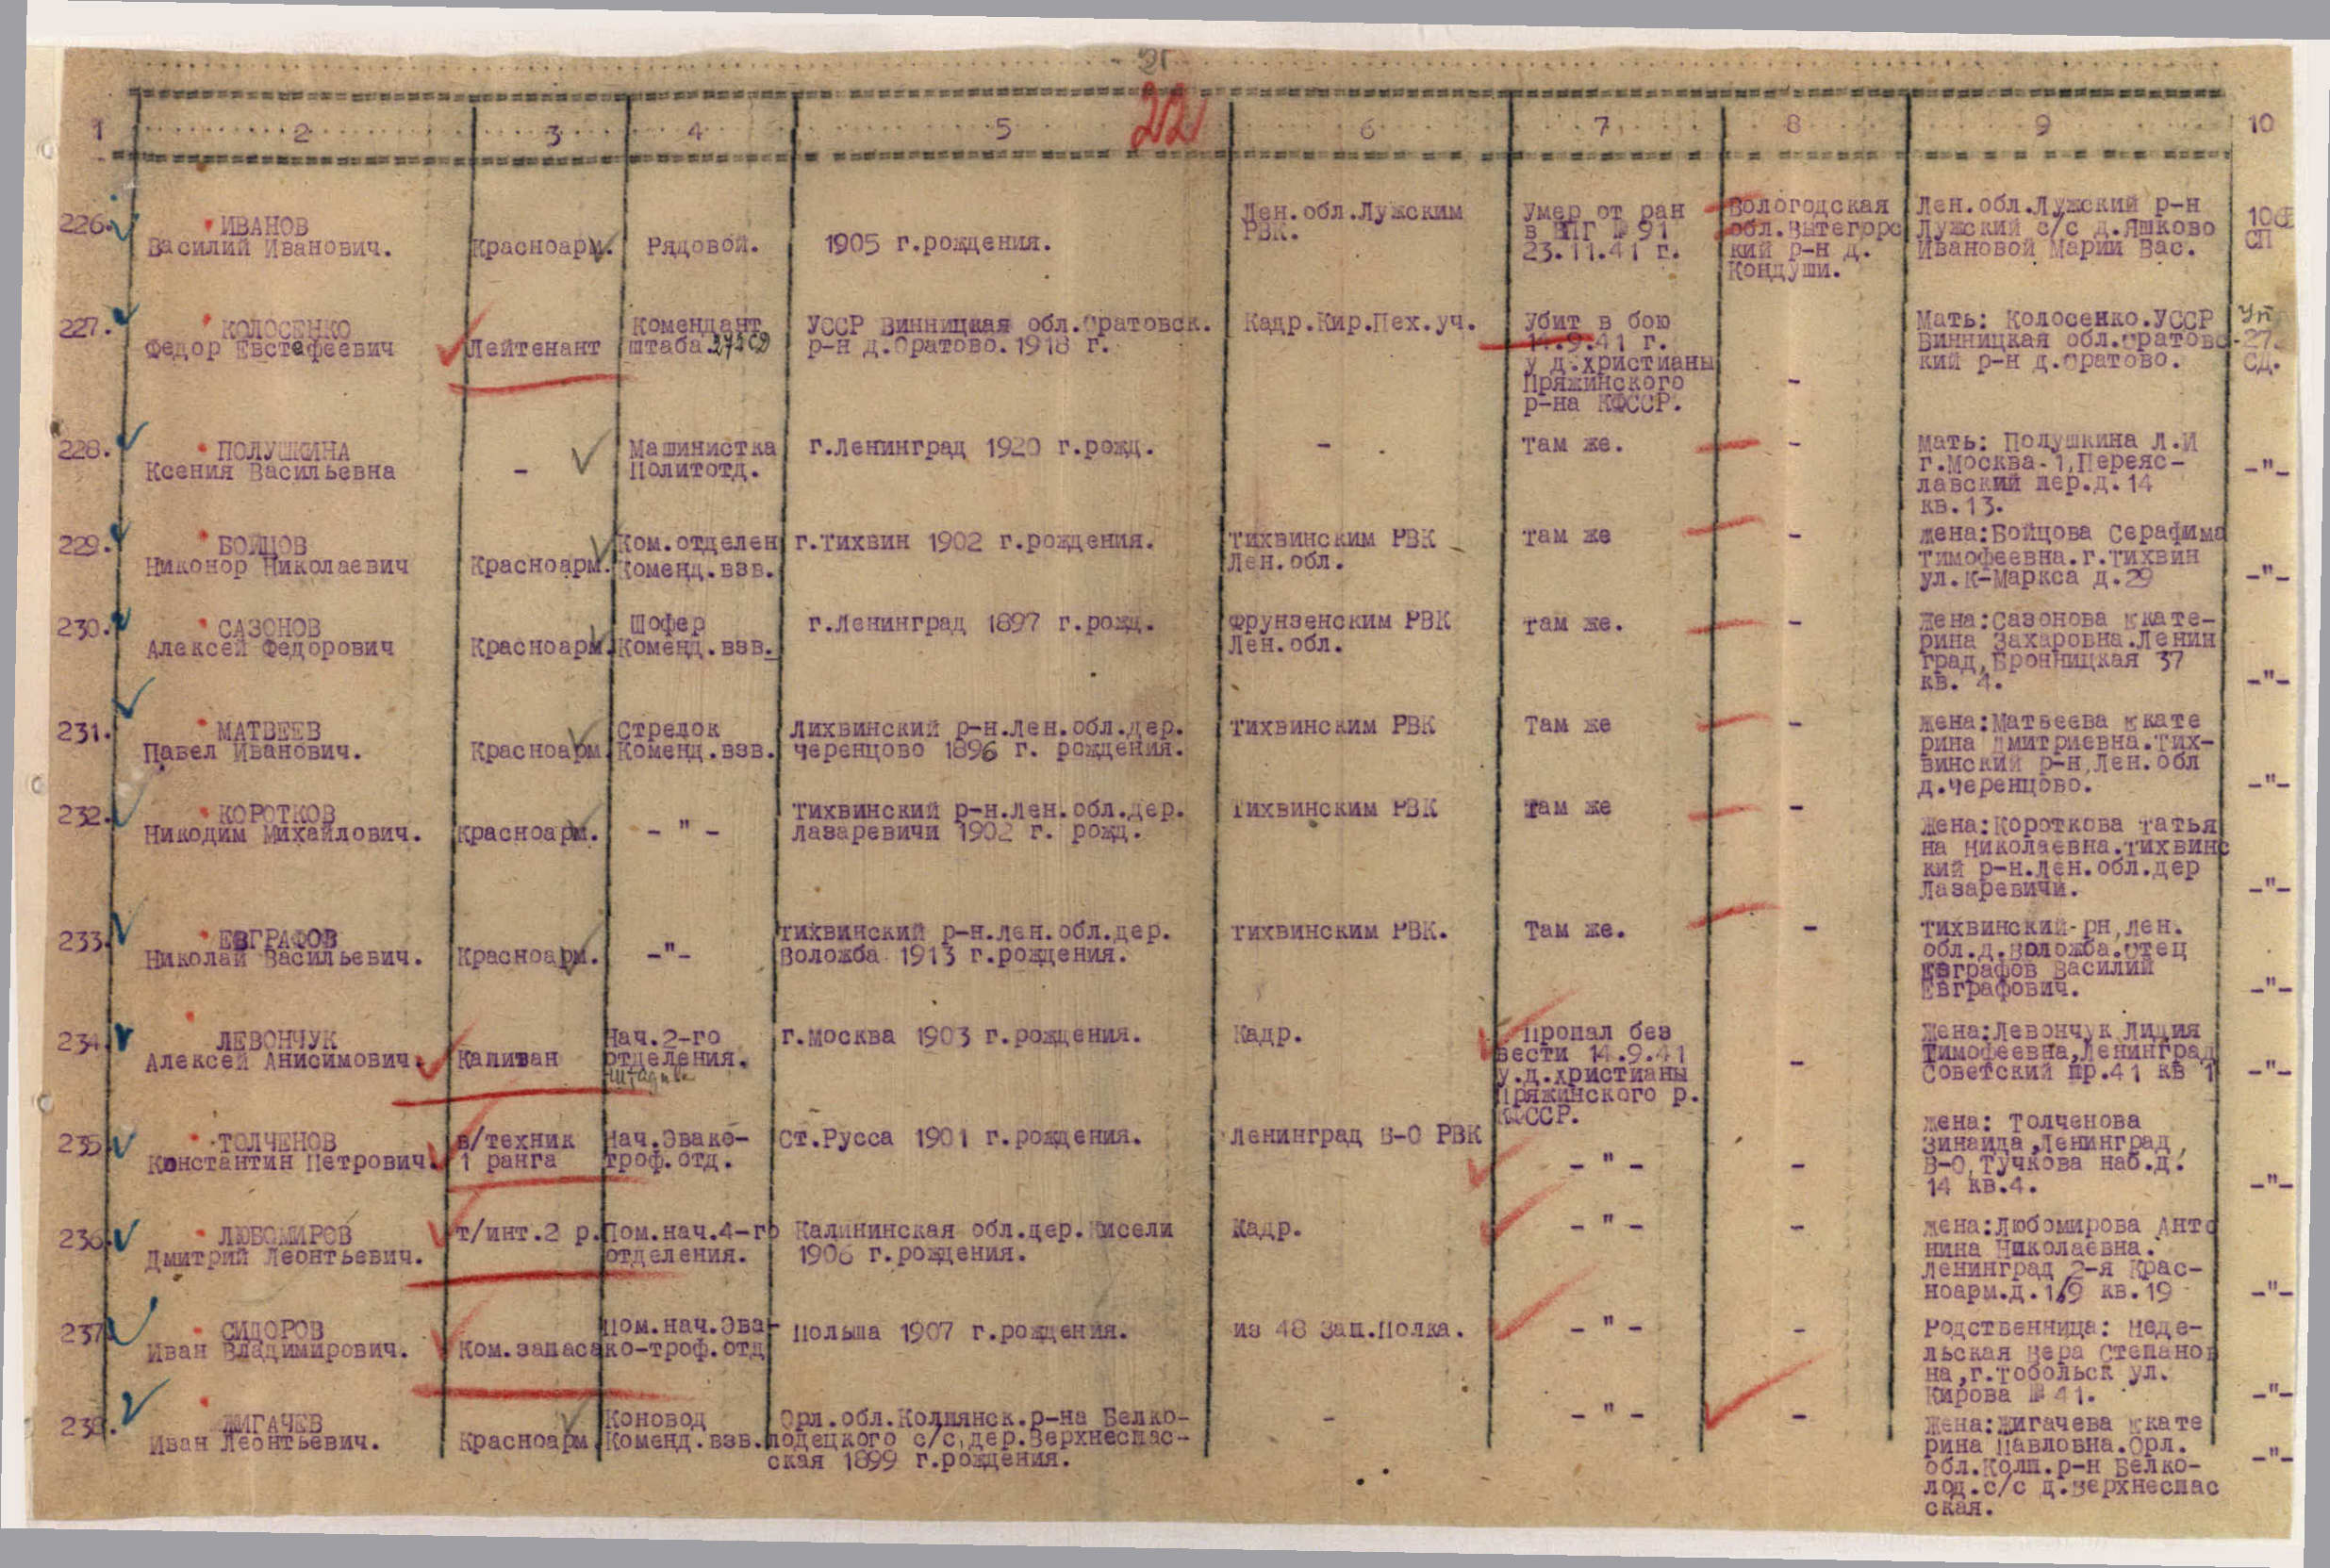 21
22
1 2 3 4 5 6 7 8 9 10
226. ИВАНОВ
Василий Иванович.
Красноарм.
Рядовой.
1905 г.рождения.
Лен.обл.Лужским
РВК.
Умер от ран
в ППГ № 91
23.11.41 г.
Вологодская
обл.Вытегорс
кий р-н д.
Кондуши.
Лен.обл.Лужский р-н
Лужский с/с д.Яшково
Ивановой Марии Вас.
СП
227. КОЛОСЕНКО
Федор Евстефеевич
Лейтенант
Комендант
штаба
УССР Винницкая обл.Оратовск.
р-н д.Оратово.1918 г.
Кадр.Кир.Пех.уч.
Убит в бою
14.9.41 г.
у д.христианы
Пряжинского
р-на КФССР.
-
Мать: Колосенко.УССР
Винницкая обл.Оратовс-
кий р-н д.Оратово.
27.
СД.
228. ПОЛУШКИНА
Ксения Васильевна
-
Машинистка
Политотд.
г.Ленинград 1920 г.рожд.
-
Там же.
-
Мать: Полушкина Л.И
г.Москва-1,Переяс-
лавский пер.д.14
кв.13.
-"-
229. БОЙЦОВ
Никонор Николаевич
Красноарм.
Ком.отделен
Коменд.взв.
г.Тихвин 1902 г.рождения.
Тихвинским РВК
Лен.обл.
Там же
-
Жена:Бойцова Серафима
Тимофеевна.г.Тихвин
ул.К-Маркса д.29
-"-
230. САЗОНОВ
Алексей Федорович
Красноарм.
Шофер
Коменд.взв.
г.Ленинград 1897 г.рожд.
Фрунзенским РВК
Лен.обл.
Там же.
-
Жена:Сазонова Екате-
рина Захаровна.Ленин
град,Бронницкая 37
кв. 4.
-"-
231. МАТВЕЕВ
Павел Иванович.
Красноарм.
Стрелок
Коменд.взв.
Лихвинский р-н.Лен.обл.дер.
Черенцово 1896 г. рождения.
Тихвинским РВК
Там же
-
Жена:Матвеева Екате
рина Дмитриевна.Тих-
винский р-н,Лен.обл
д.Черенцово.
-"-
232. КОРОТКОВ
Никодим Михайлович.
Красноарм.
- " -
Тихвинский р-н.Лен.обл.дер.
Лазаревичи 1902 г. рожд.
Тихвинским РВК
Там же
-
Жена:Короткова Татья
на Николаевна.Тихвинс
кий р-н.Лен.обл.дер
Лазаревичи.
-"-
233. ЕВГРАФОВ
Николай Васильевич.
Красноарм.
-"-
Тихвинский р-н.Лен.обл.дер.
Воложба 1913 г.рождения.
Тихвинским РВК.
Там же.
-
Тихвинский-рн,Лен.
обл.д.Воложба.Отец
Евграфов Василий
Евграфович.
-"-
234. ЛЕВОНЧУК
Алексей Анисимович.
Капитан
Нач.2-го
отделения.
штадива
г.Москва 1903 г.рождения.
Кадр.
Пропал без
вести 14.9.41
у.д.христианы
Пряжинского р.
КФССР.
-
Жена:Левончук Лидия
Тимофеевна,Ленинград
Советский пр.41 кв 1
-"-
235. ТОЛЧЕНОВ
Константин Петрович.
в/техник
1 ранга
Нач.Эвако-
троф.отд.
Ст.Русса 1901 г.рождения.
Ленинград В-О РВК
- " -
-
Жена: Толченова
Зинаида,Ленинград,
В-О,Тучкова наб.д.
14 кв.4.
-"-
236. ЛЮБОМИРОВ
Дмитрий Леонтьевич.
т/инт.2 р.
Пом.нач.4-го
отделения.
Калининская обл.дер.Кисели
1906 г.рождения.
Кадр.
- " -
-
Жена:Любомирова Анто
нина Николаевна.
Ленинград 2-я Крас-
ноарм.д.1/9 кв.19
-"-
237. СИДОРОВ
Иван Владимирович.
Ком.запаса
Пом.нач.Эва-
ко-троф.отд
Польша 1907 г.рождения.
из 48 Зап.Полка.
- " -
-
Родственница: Неде-
льская Вера Степанов
на,г.Тобольск ул.
Кирова № 41.
-"-
238. ЖИГАЧЕВ
Иван Леонтьевич.
Красноарм.
Коновод
Коменд.взв.
Орл.обл.Колпянск.р-на Белко-
лодецкого с/с,дер.Верхнеспас-
ская 1899 г.рождения.
-
- " -
-
Жена:Жигачева Екате
рина Павловна.Орл.
обл.Колп.р-н Белко-
лод.с/с д.Верхнеспас
ская.
-"-